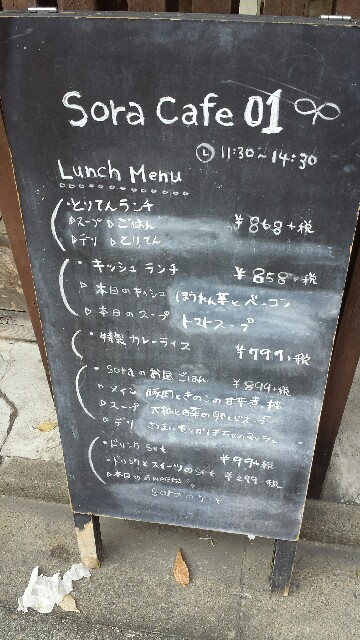 Sora Cafe 01
11:30~14:30
Lunch Menu
・とりてんランチ
▷スープ ▷ごはん ¥868+税
▷デリ ▷とりてん
・キッシュランチ ¥858+税
▷本日のキッシュ ほうれん草とベーコン
▷本日のスープ トマトスープ
・特製カレーライス ¥797+税
・Soraのお昼ごはん ¥899+税
メイン 豚肉ときのこの甘辛
▷スープ 大根と
▷デリ さつまいもとかぼちゃのマッシュ
・ドリンクSet ¥99+税
・ドリンクとスイーツのSet ¥299+税
▷本日の